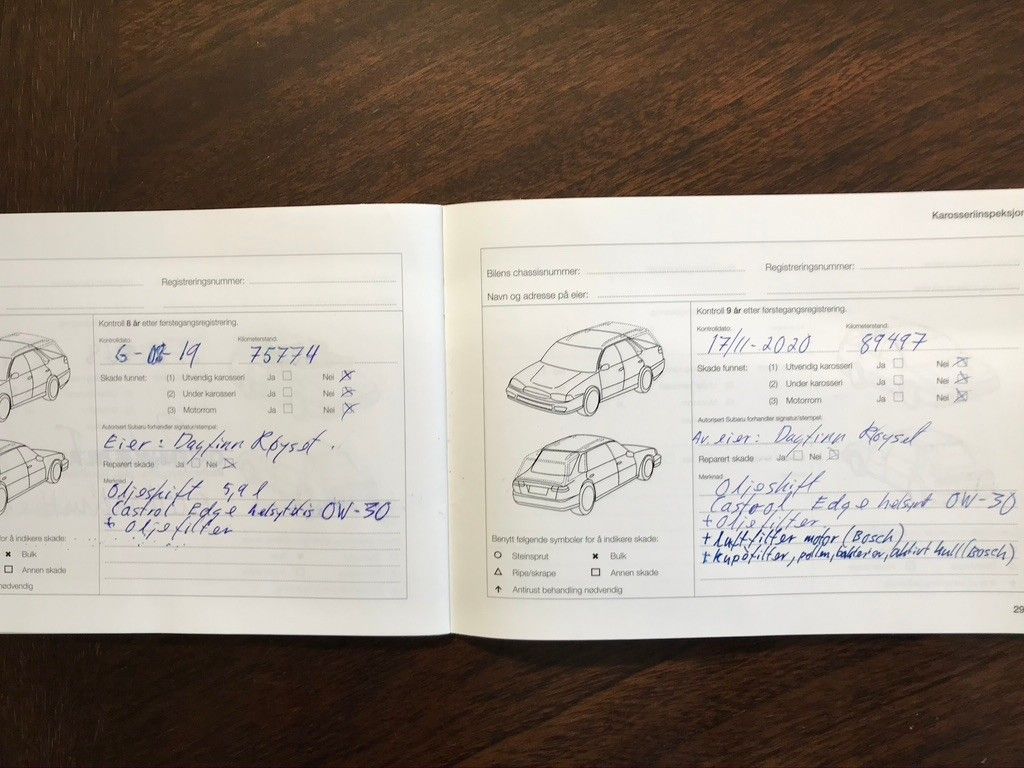 Registreringsnummer:
Kontroll 8 år etter førstegangsregistrering.
Kontrolldato:
Kilometerstand:
6- -19
75774
Skade funnet: (1) Utvendig karosseri Ja Nei
(2) Under karosseri Ja Nei
(3) Motorrom Ja Nei
Autorisert Subaru forhandler signatur/stempel:
Eier: Dagfinn Røyset.
Reparert skade Ja Nei
Merknad
Oljeskift 5,9 l
Castrol Edge 0W-30
+ Oljefilter
for å indikere skade:
Bulk
Annen skade
nødvendig
Karosseriinspeksjon
Bilens chassisnummer: Registreringsnummer:
Navn og adresse på eier:
Kontroll 9 år etter førstegangsregistrering.
Kontrolldato:
Kilometerstand:
17/11-2020
89497
Skade funnet: (1) Utvendig karosseri Ja Nei
(2) Under karosseri Ja Nei
(3) Motorrom Ja Nei
Autorisert Subaru forhandler signatur/stempel:
Av eier: Dagfinn Røyset
Reparert skade Ja Nei
Merknad
Oljeskift
Castrol Edge helsynt 0W-30
+ Oljefilter
+ Luftfilter motor (Bosch)
+ Kupefilter, pollen, bakterier, aktivt kull (Bosch)
Benytt følgende symboler for å indikere skade:
Steinsprut Bulk
Ripe/skrape Annen skade
Antirust behandling nødvendig
29